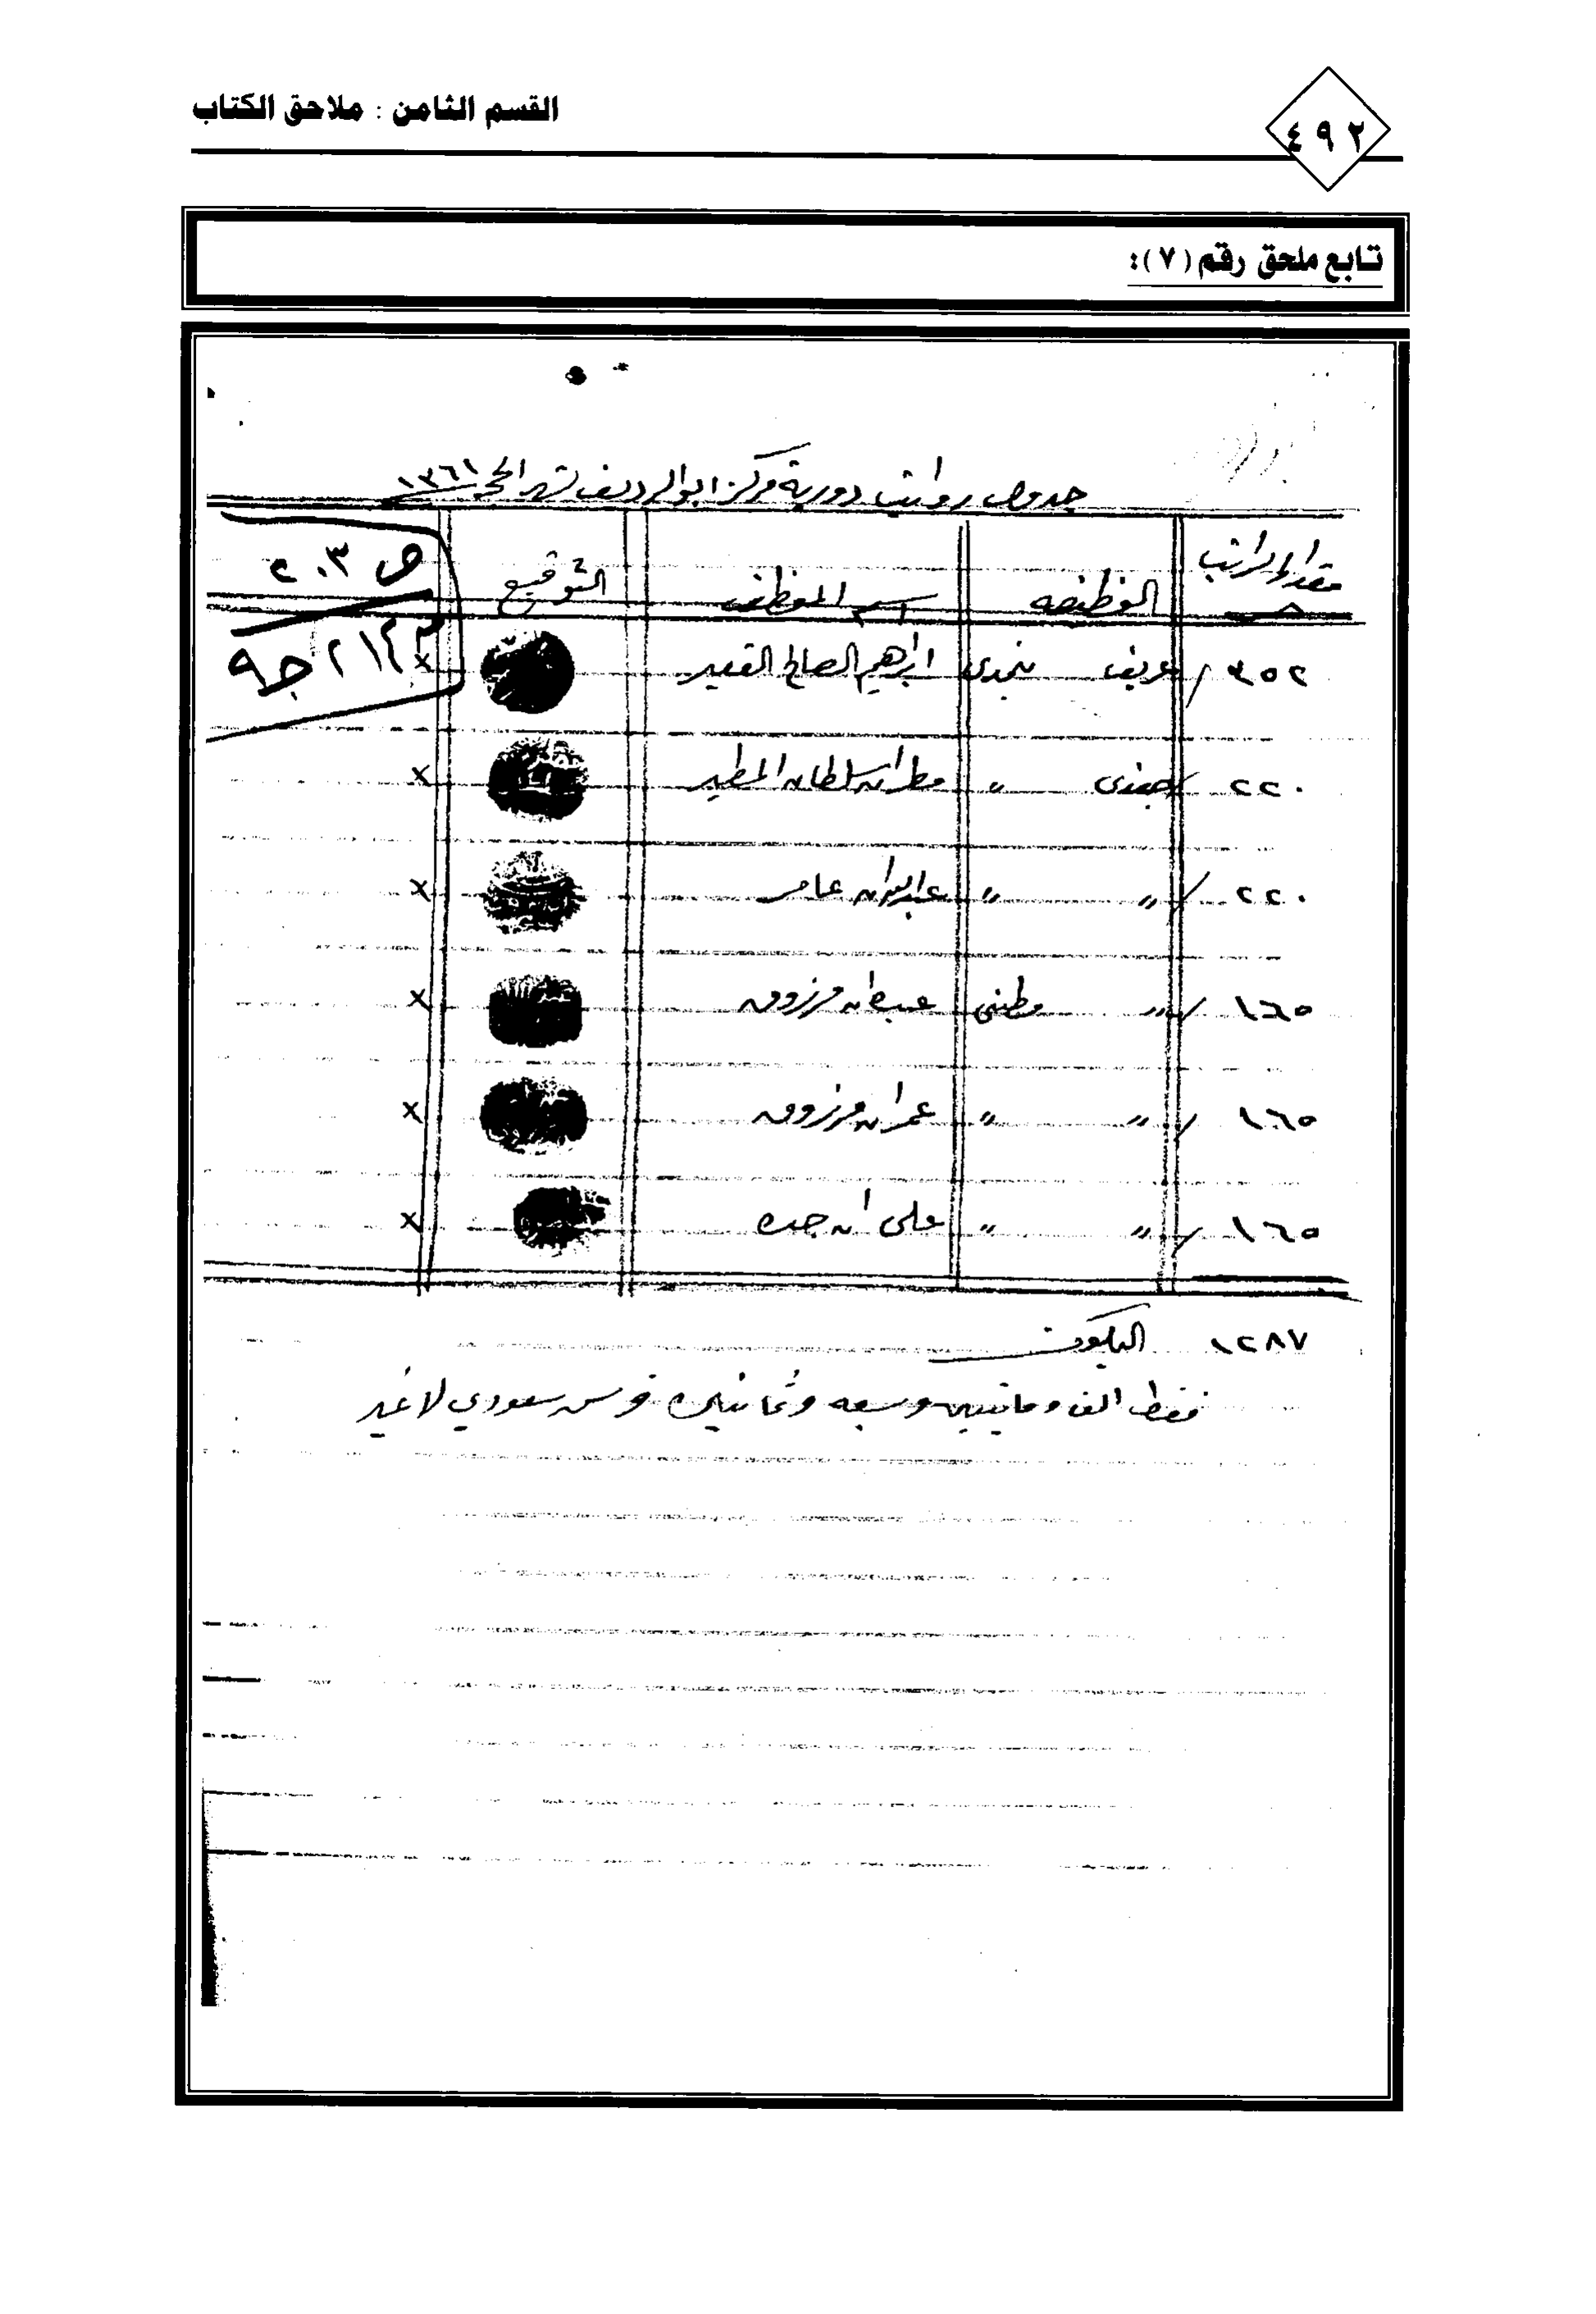 القسم الثامن : ملاحق الكتاب
٤٩٢
تابع ملحق رقم (٧):
جدول رواتب دورية مركز ابوالرديف لشهر الحج ١٣٦١
مقدار الراتب الوظيفه اسم الموظف التوقيع ص ٢٠٣
٣٥٢ / عريف نجدى ابراهيم الصالح القعير x
٢٢٠ / جندى " مطر ابن سلطان المطير x
٢٢٠ / " " عبدالله ابن عامر x
١٦٥ / " وطنى عبده ابن مرزوق x
١٦٥ / " " عمر ابن مرزوق x
١٦٥ / " " على ابن جده x
١٢٨٧ اليكون
فقط الف ومايتين وسبعه وثمانين قرش سعودي لاغير